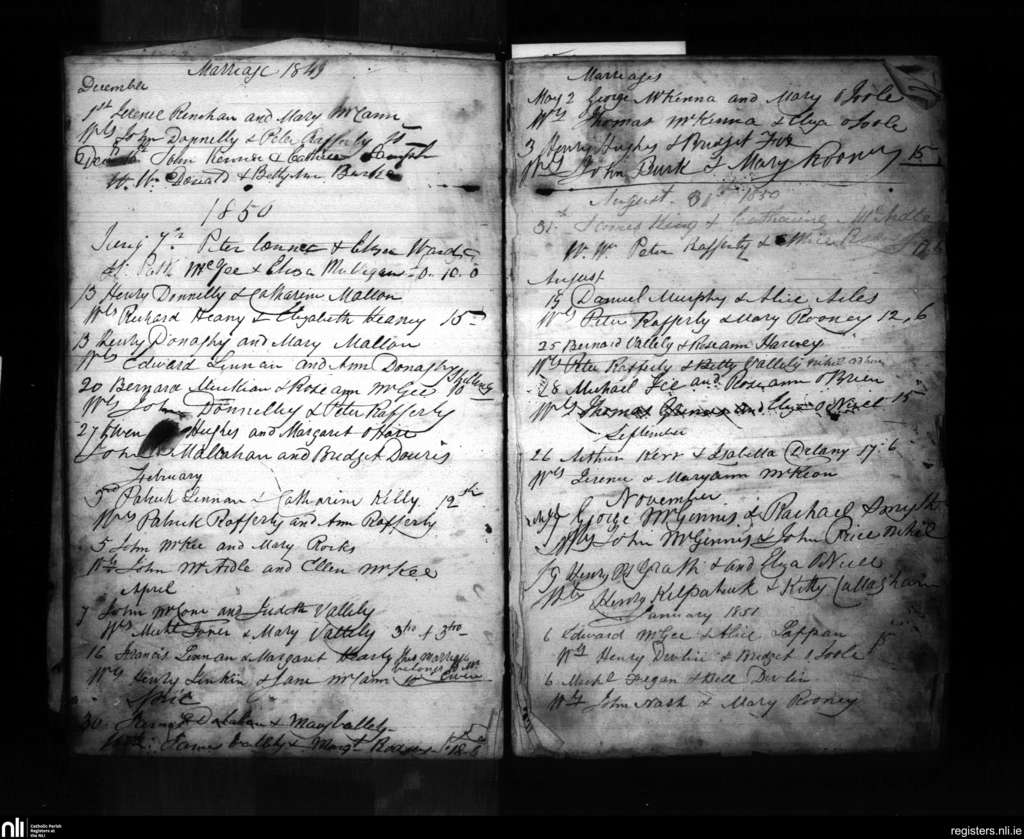 Marriage 1849
December
1st Terence Renehan and Mary McCann
Wts John Donnelly & Peter Rafferty
6 John &
W. W. Donald & Betty Ann Burke
1850
7th Peter Connor & Eliza Ward
Patk McGee & Eliza Mulligan - 0 - 10 - 0
13 Henry Donnelly & Catharin Mallon
Wts Richard Heany & Elizabeth Heaney 15
13 Henry Donaghy and Mary Mallon
Wts Edward Linnan and Ann Donaghy
20 Bernard & Rose ann McGee 10 Shillings
Wts John Donnelly & Peter Rafferty
27 Owen Hughes and Margaret O Hare
John Mallahan and Bridget
February
3rd Patrick Linnan & Catharine Kelly 12
Wts Patrick Rafferty and Ann Rafferty
5 John McKee and Mary Rocks
Wts John McArdle and Ellen McKee
April
7 John McCone and Judith Vallely
Wts Michl Toner & Mary Vallely
16 Francis Linnan & Margaret this marriage
belongs
Wts Henry & Jane McCann
30 & Mary Vallely
James Vallely & Margt
Marriages
May 2 George McKenna and Mary O Toole
Wts Thomas McKenna & Eliza O Toole
3 Henry Hughes & Bridget Fox
Wts John Burk & Mary Rooney 15
August 31st 1850
31st James King & Catharine McArdle
W. W. Peter Rafferty & Alice
August
15 Daniel Murphy & Alice
Wts Peter Rafferty & Mary Rooney 12, 6
25 Bernard Vallely & Rose ann Harvey
Wts Peter Rafferty & Betty Vallely
28 Michael Fee and Rose ann O Brien
Wts Thomas and Eliza O Neill 15
September
26 Arthur Kerr & Isabella Delany 17 " 6
Wts Terence & Maryann McKeon
November
George McGinnis & Rachael Smyth
Wts John McGinnis & John Price
9 Henry and Eliza O Neill
Wts Henry Kilpatrick & Kitty Callaghan
January 1851
6 Edward McGee & Alice Tappan
Wts Henry Devlin & Bridget O Toole 15
6 Michl Fegan & Bell Devlin
Wts John Nash & Mary Rooney
nli
Catholic Parish
Registers at
the NLI
registers.nli.ie